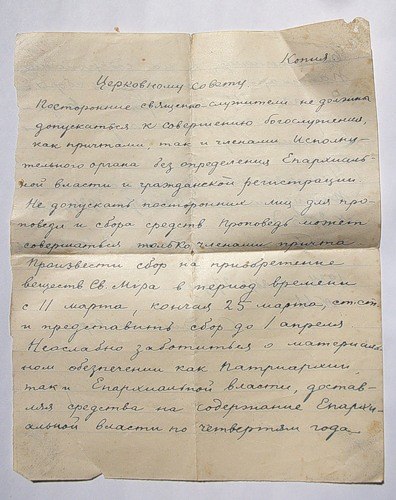 Копия
Церковному совету.
Посторонние священно-служители не должны
допускаться к совершению богослужения,
как причтами, так и членами Исполни-
тельного органа без определения Епархиаль-
ной власти и гражданской регистрации.
Не допускать посторонних лиц для про-
поведи и сбора средств. Проповедь может
совершаться только членами причта.
Произвести сбор на приобретение
веществ Св. Мира в период времени
с 11 марта, кончая 25 марта, ст.ст.
и представить сбор до 1 апреля.
Неослабно заботиться о материаль-
ном обеспечении как Патриархии,
так и Епархиальной власти, достав-
ляя средства на содержание Епархи-
альной власти по четвертям года.